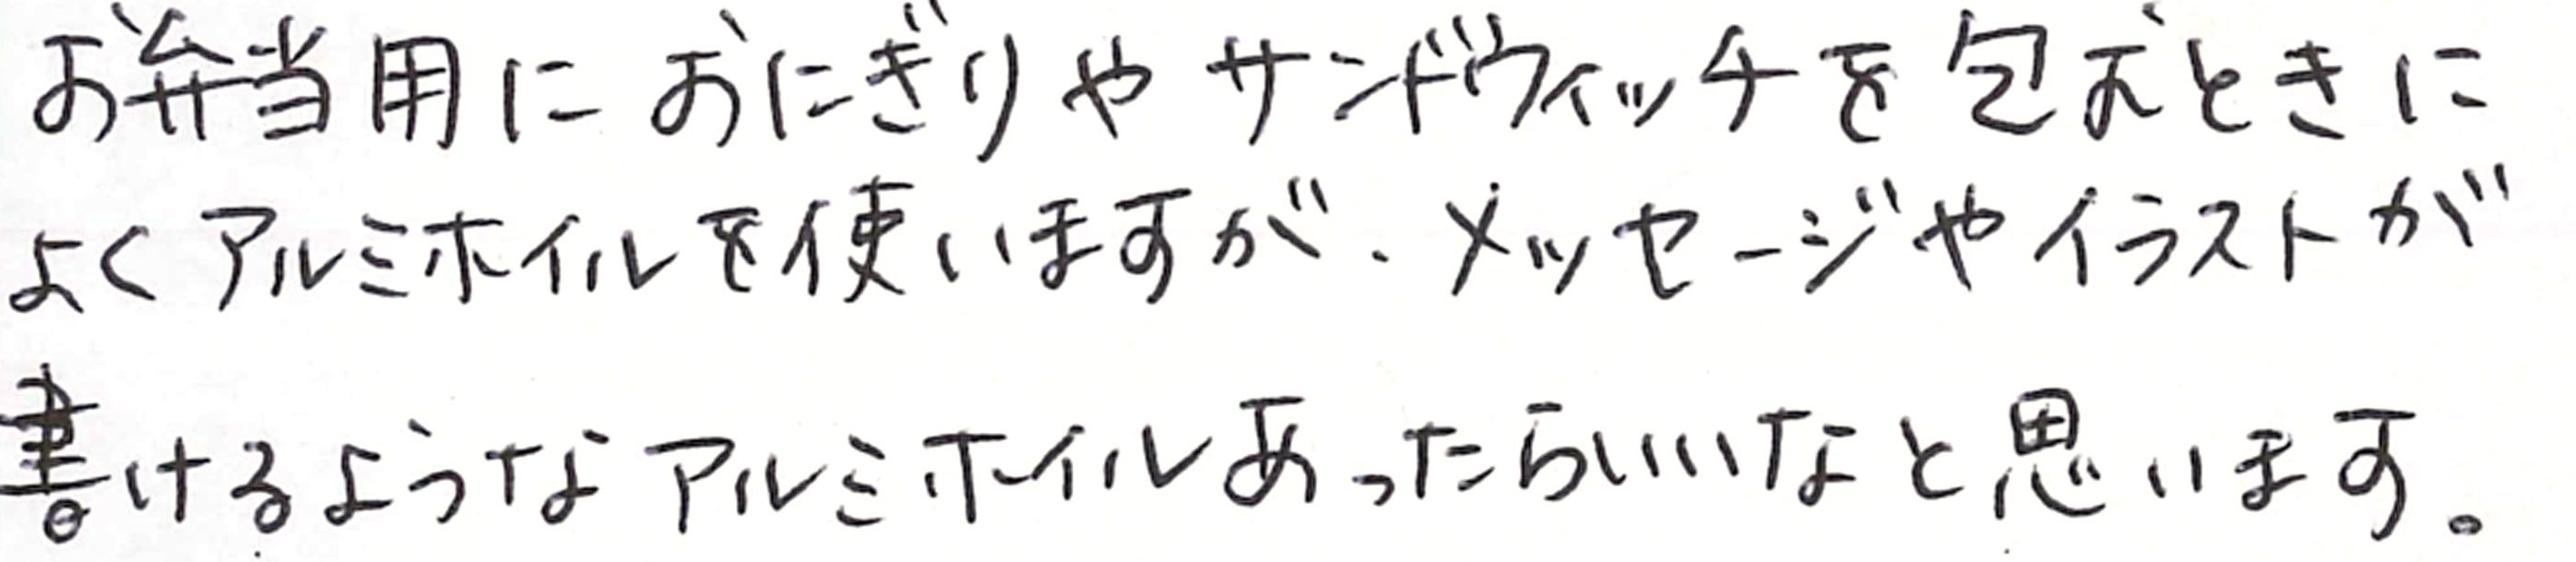 お弁当用におにぎりやサンドウィッチを包むときに
よくアルミホイルを使いますが、メッセージやイラストが
書けるようなアルミホイルあったらいいなと思います。